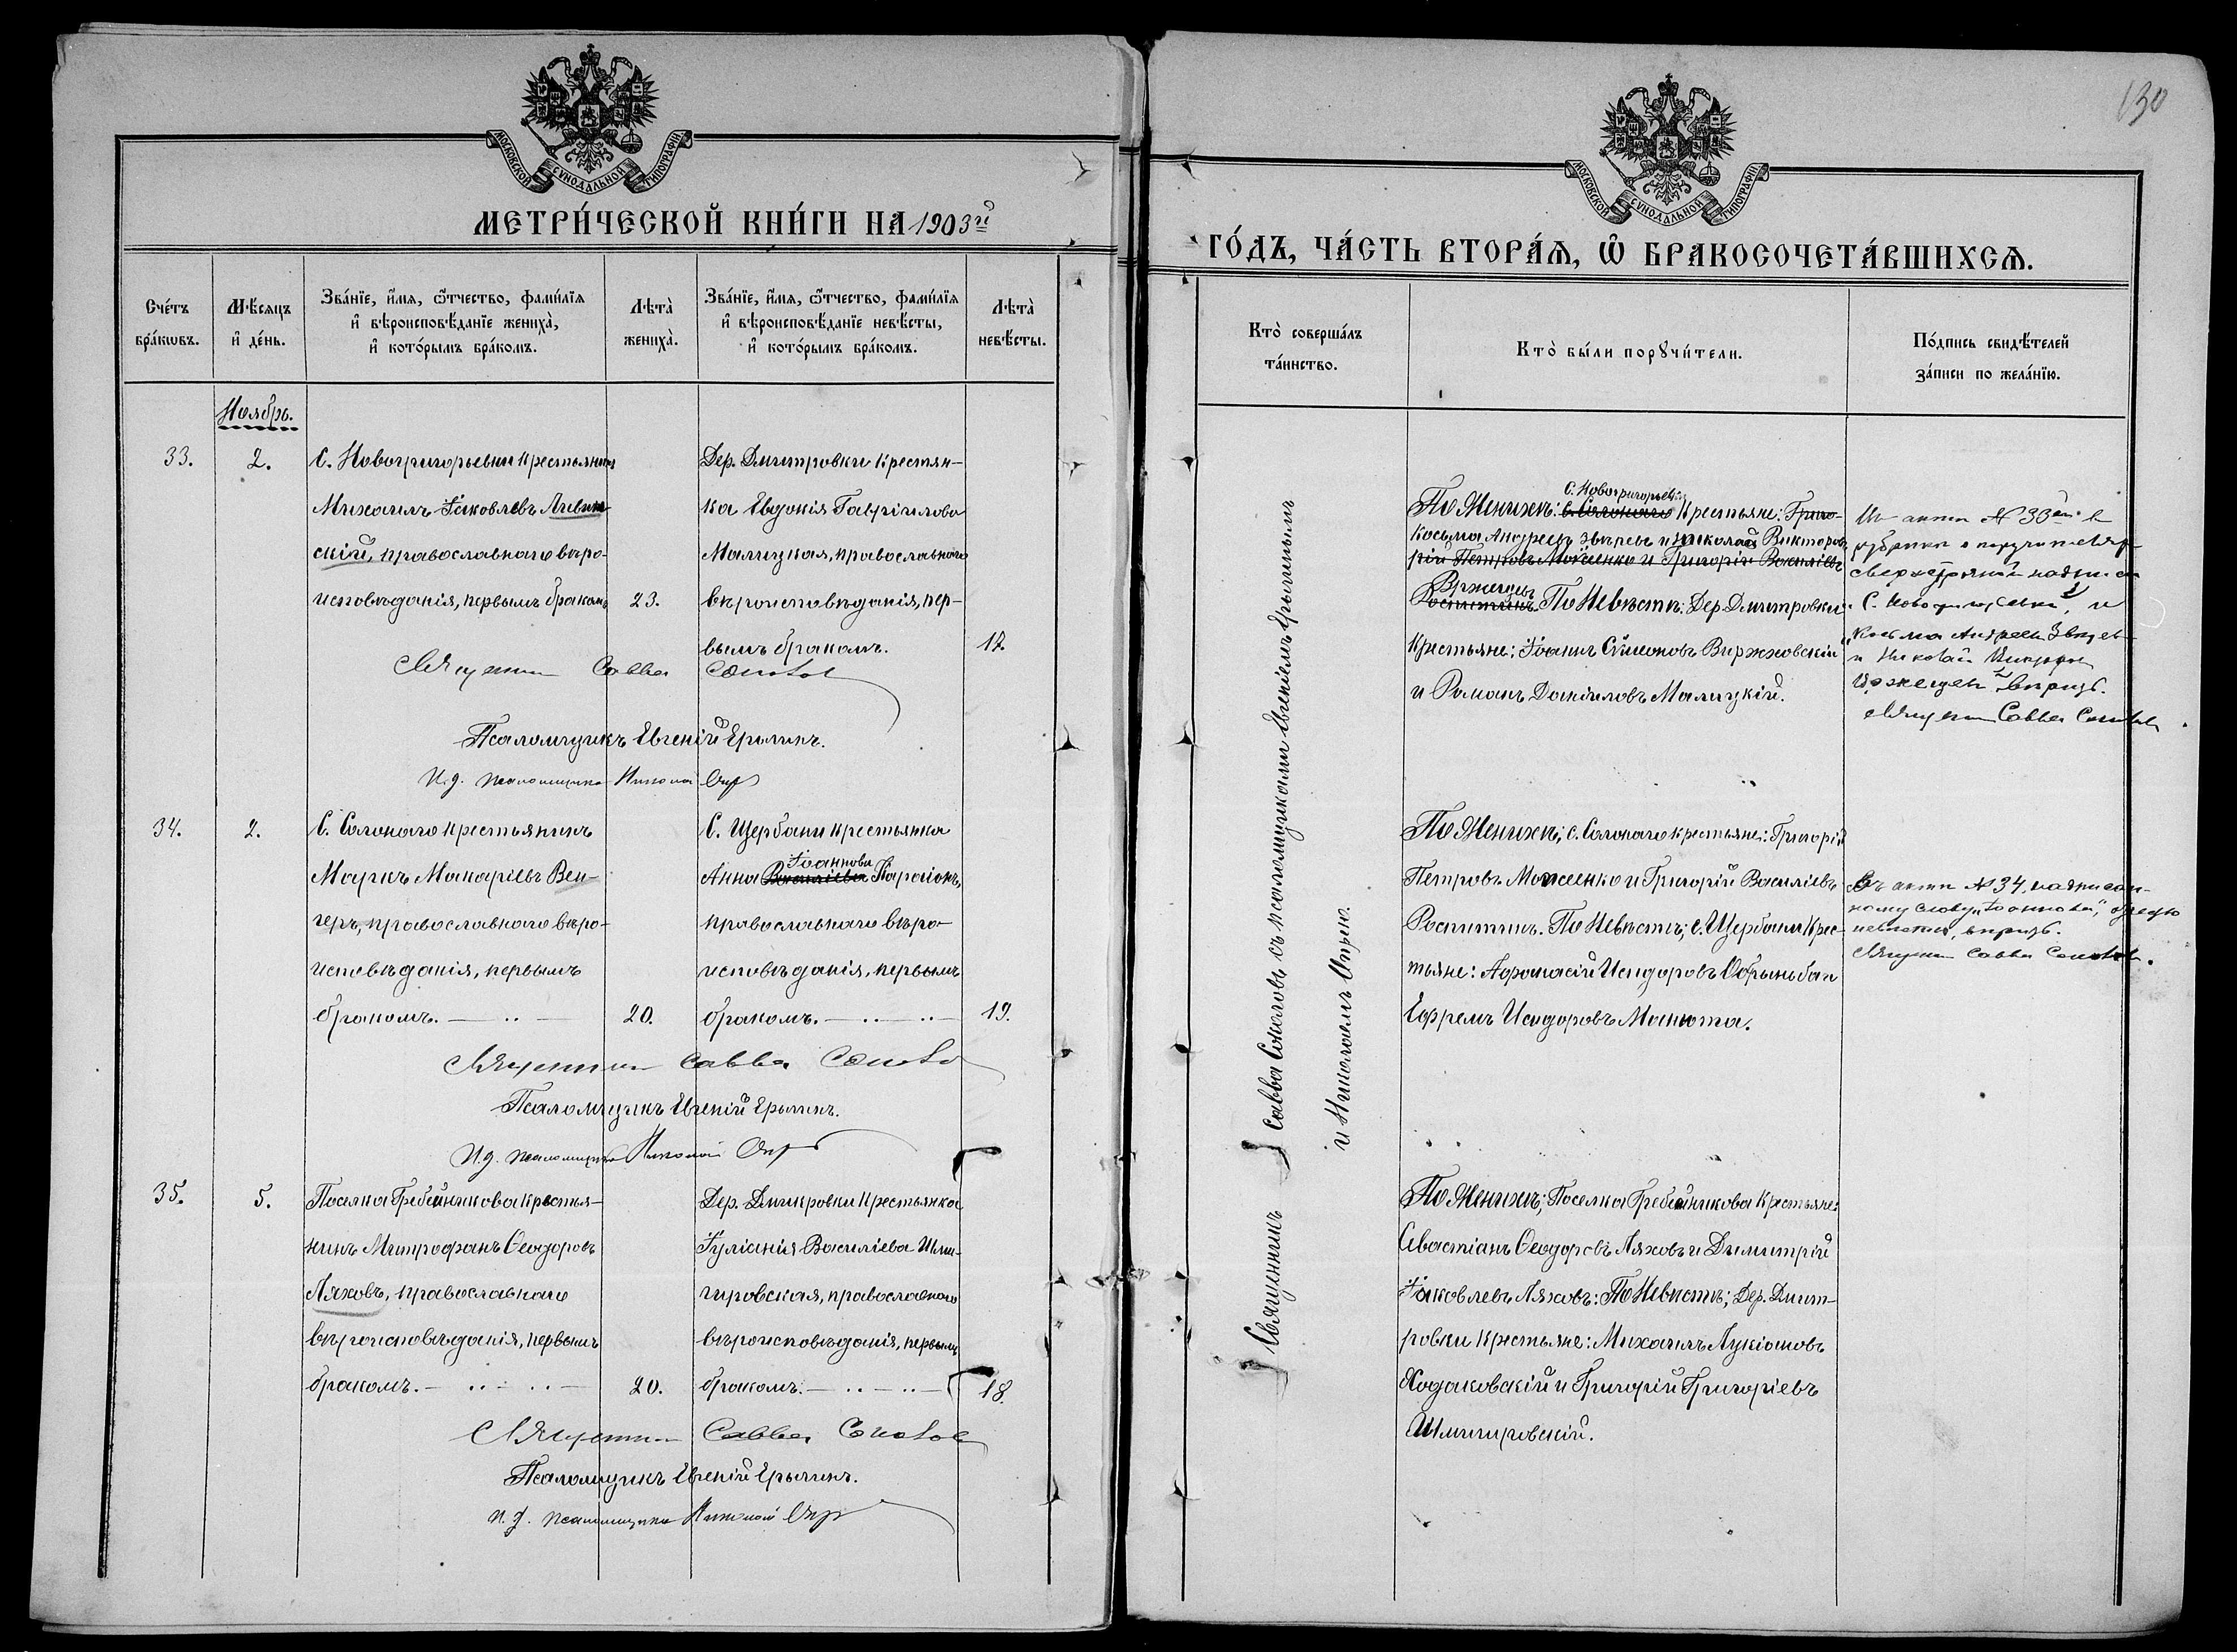 130
МОСКОВСКОЙ СѴНОДАЛЬНОЙ ТИПОГРАФІИ
МЕТРИ́ЧЕСКОЙ КНИ́ГИ НА 1903й
Сче́тъ бра́кѡвъ.
Мѣ́сяцъ и҆ де́нь.
Зва́нїе, и҆́мя, ѻ҆́тчество, фами́лїя
и҆ вѣроисповѣ́данїе жениха̀,
и҆ кото́рымъ бра́комъ.
Лѣта̀ жениха̀.
Зва́нїе, и҆́мя, ѻ҆́тчество, фами́лїя
и҆ вѣроисповѣ́данїе невѣ́сты,
и҆ кото́рымъ бра́комъ.
Лѣта̀ невѣ́сты.
Ноябрь.
33.
2.
С. Новогригорьевки крестьянинъ
Михаилъ Іаковлевъ Ливин-
скій, православнаго вѣро-
исповѣданія, первымъ бракомъ
23.
Дер. Дмитровки крестьян-
ка Евдокія Гавріилова
Малицкая, православнаго
вѣроисповѣданія, пер-
вымъ бракомъ.
17.
Священникъ Савва Соколов
Псаломщикъ Евгеній Ерыминъ.
И.д. псаломщика Николай
34.
2.
С. Солонаго крестьянинъ
Маркъ Макаріевъ Вен-
геръ, православнаго вѣро-
исповѣданія, первымъ
бракомъ.
20.
С. Щербани крестьянка
Іоаннова
Анна Василіева
православнаго вѣро-
исповѣданія, первымъ
бракомъ.
19.
Священникъ Савва Соколов
Псаломщикъ Евгеній Ерыминъ.
И.д. псаломщика Николай
35.
5.
Поселка Гребенникова крестья-
нинъ Митрофанъ Ѳеодоровъ
Ляховъ, православнаго
вѣроисповѣданія, первымъ
бракомъ.
20.
Дер. Дмитровки крестьянка
Іуліанія Василіева Шми-
гировская, православнаго
вѣроисповѣданія, первымъ
бракомъ.
18.
Священникъ Савва Соколов
Псаломщикъ Евгеній Ерыминъ.
И.д. псаломщика Николай
МОСКОВСКОЙ СѴНОДАЛЬНОЙ ТИПОГРАФІИ
ГО́ДЪ, ЧА́СТЬ ВТОРА́Ѧ, Ѽ БРАКОСОЧЕТА́ВШИХСѦ.
Кто̀ соверша́лъ
та́инство.
Кто̀ бы́ли порꙋчи́тели.
По́дпись свидѣ́телей
за́писи по жела́нїю.
Священникъ Савва Соколовъ съ псаломщиками Евгеніемъ Ерыминымъ
и Николаемъ
С. Новогригорьевки
По Женихѣ: с. Солонаго крестьяне: Григо-
Косьма Андреевъ Звѣревъ и Николай Викторовъ
рій Петровъ Мойсенко и Григорій Василіевъ
Вржещъ
Роспитинъ. По Невѣстѣ: Дер. Дмитровки
крестьяне: Іоаннъ Сѵмеоновъ Виржховскій
и Романъ Даніиловъ Малицкій.
Въ актѣ № 33мъ в
рубрикѣ о поручителяхъ
сверхстрочной надписи
"С. Новогригорьевки", и
"Косьма Андреевъ Звѣревъ
и Николай Викторовъ
Вржещъ" вѣрить.
Священникъ Савва Соколов
По Женихѣ; с. Солонаго крестьяне: Григорій
Петровъ Мойсенко и Григорій Василіевъ
Роспитинъ. По Невѣстѣ; с. Щербани крес-
тьяне: Аѳанасій Исидоровъ
Ефремъ Исидоровъ Манюта.
Въ актѣ № 34, надписан-
ному слову "Іоаннова",
невѣсты, вѣрить.
Священникъ Савва Соколов.
По Женихѣ; Поселка Гребенникова крестьяне:
Севастіанъ Ѳеодоровъ Ляховъ и Димитрій
Іаковлевъ Ляховъ: По Невѣстѣ; Дер. Дмит-
ровки крестьяне: Михаилъ Лукіановъ
Ходаковскій и Григорій Григоріевъ
Шмигировскій.